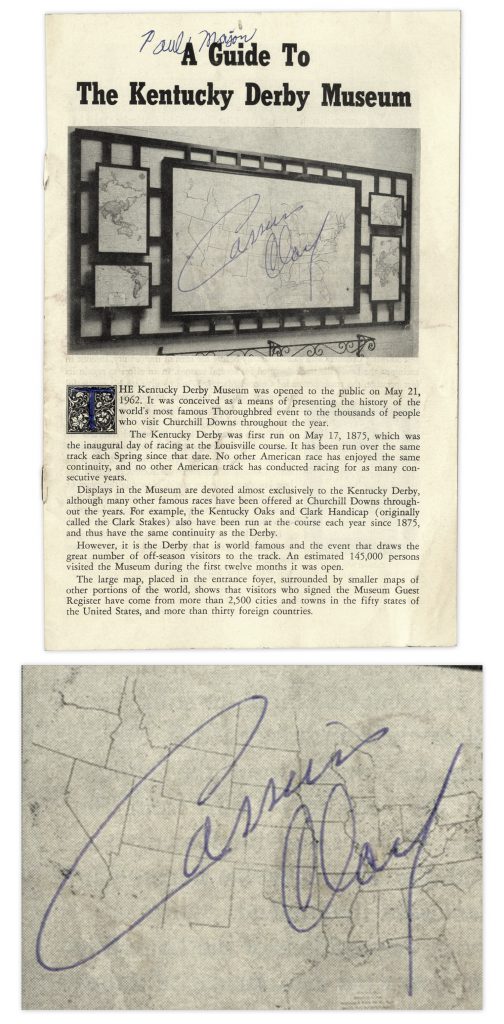 Paul Mason
A Guide To
The Kentucky Derby Museum
Cassius
Clay
THE Kentucky Derby Museum was opened to the public on May 21,
1962. It was conceived as a means of presenting the history of the
world's most famous Thoroughbred event to the thousands of people
who visit Churchill Downs throughout the year.
The Kentucky Derby was first run on May 17, 1875, which was
the inaugural day of racing at the Louisville course. It has been run over the same
track each Spring since that date. No other American race has enjoyed the same
continuity, and no other American track has conducted racing for as many con-
secutive years.
Displays in the Museum are devoted almost exclusively to the Kentucky Derby,
although many other famous races have been offered at Churchill Downs through-
out the years. For example, the Kentucky Oaks and Clark Handicap (originally
called the Clark Stakes) also have been run at the course each year since 1875,
and thus have the same continuity as the Derby.
However, it is the Derby that is world famous and the event that draws the
great number of off-season visitors to the track. An estimated 145,000 persons
visited the Museum during the first twelve months it was open.
The large map, placed in the entrance foyer, surrounded by smaller maps of
other portions of the world, shows that visitors who signed the Museum Guest
Register have come from more than 2,500 cities and towns in the fifty states of
the United States, and more than thirty foreign countries.
Cassius
Clay